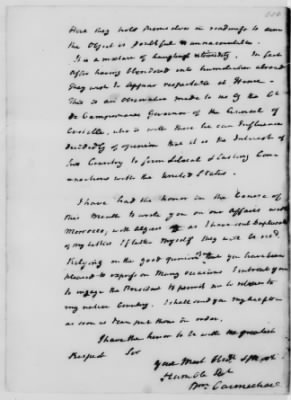 Here they hold themselves in readiness to arm
the Object is doubtful & unaccountable.
It is a mixture of haughty & timidity. In fact
After having blundered into humiliation abroad
They wish to Appear respectable at Home —
This is an Observation made to me by the Ct
de Campomanes Governor of the Council of
Castille, who is with those he can Influence
decidedly of opinion that it is the Interest of
his Country to form Liberal & Lasting Con
nections with the United States.
I have had the honor in the Course of
this Month to wrote you on our Affairs with
Morocco, with Algiers & as I have sent Duplicates
of my letters I flatter Myself they will be recd.
Relying on the good opinion that you have been
pleased to express on Many occasions I entreat you
to engage the President to permit me to return to
my native Country. I shall send you my
as soon as I can put them in order.
I have the honor to be with the greatest
Respect Sir
Your Most Obedt &
Humble Sert
Wm Carmichael